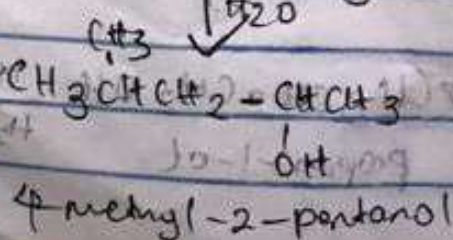 H2O
CH3
CH3CHCH2-CHCH3
OH
4-methyl-2-pentanol